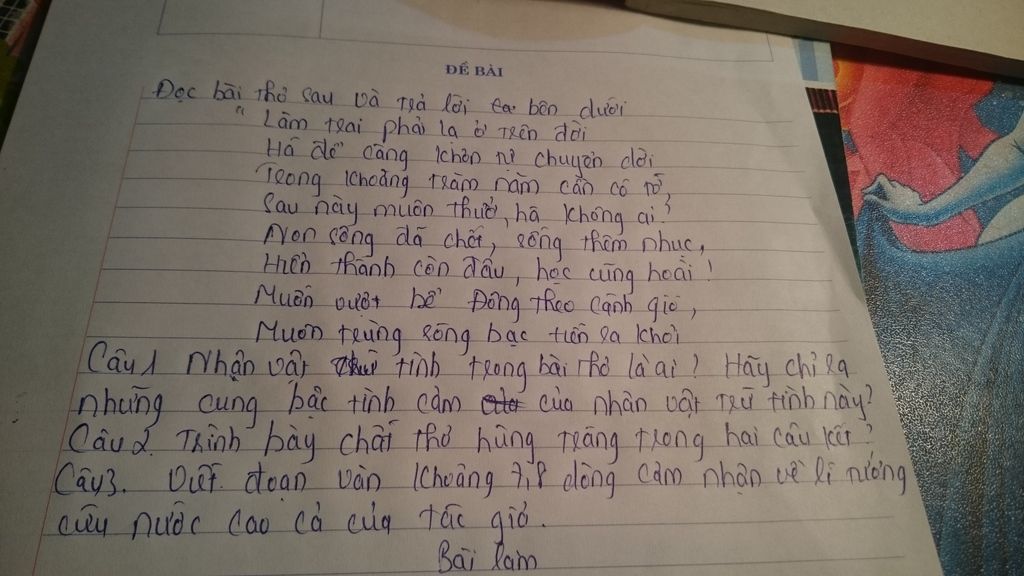 ĐỀ BÀI
Đọc bài thơ sau và trả lời bên dưới
"Làm trai phải lạ ở trên đời
Há để càng khôn tự chuyển dời
Trong khoảng trăm năm cần có tớ,
Sau này muôn thuở, há không ai?
Non sông đã chết, sống thêm nhục,
Hiền thánh còn đâu, học cũng hoài!
Muốn vượt bể Đông theo cánh gió,
Muôn trùng sóng bạc tiễn ra khơi
Câu 1 Nhân vật tình trong bài thơ là ai? Hãy chỉ ra
những cung bậc tình cảm của nhân vật trữ tình này?
Câu 2. Trình bày chất thơ hùng tráng trong hai câu kết?
Câu 3. Viết đoạn văn khoảng 7,8 dòng cảm nhận về lí tưởng
cứu nước cao cả của tác giả.
Bài làm